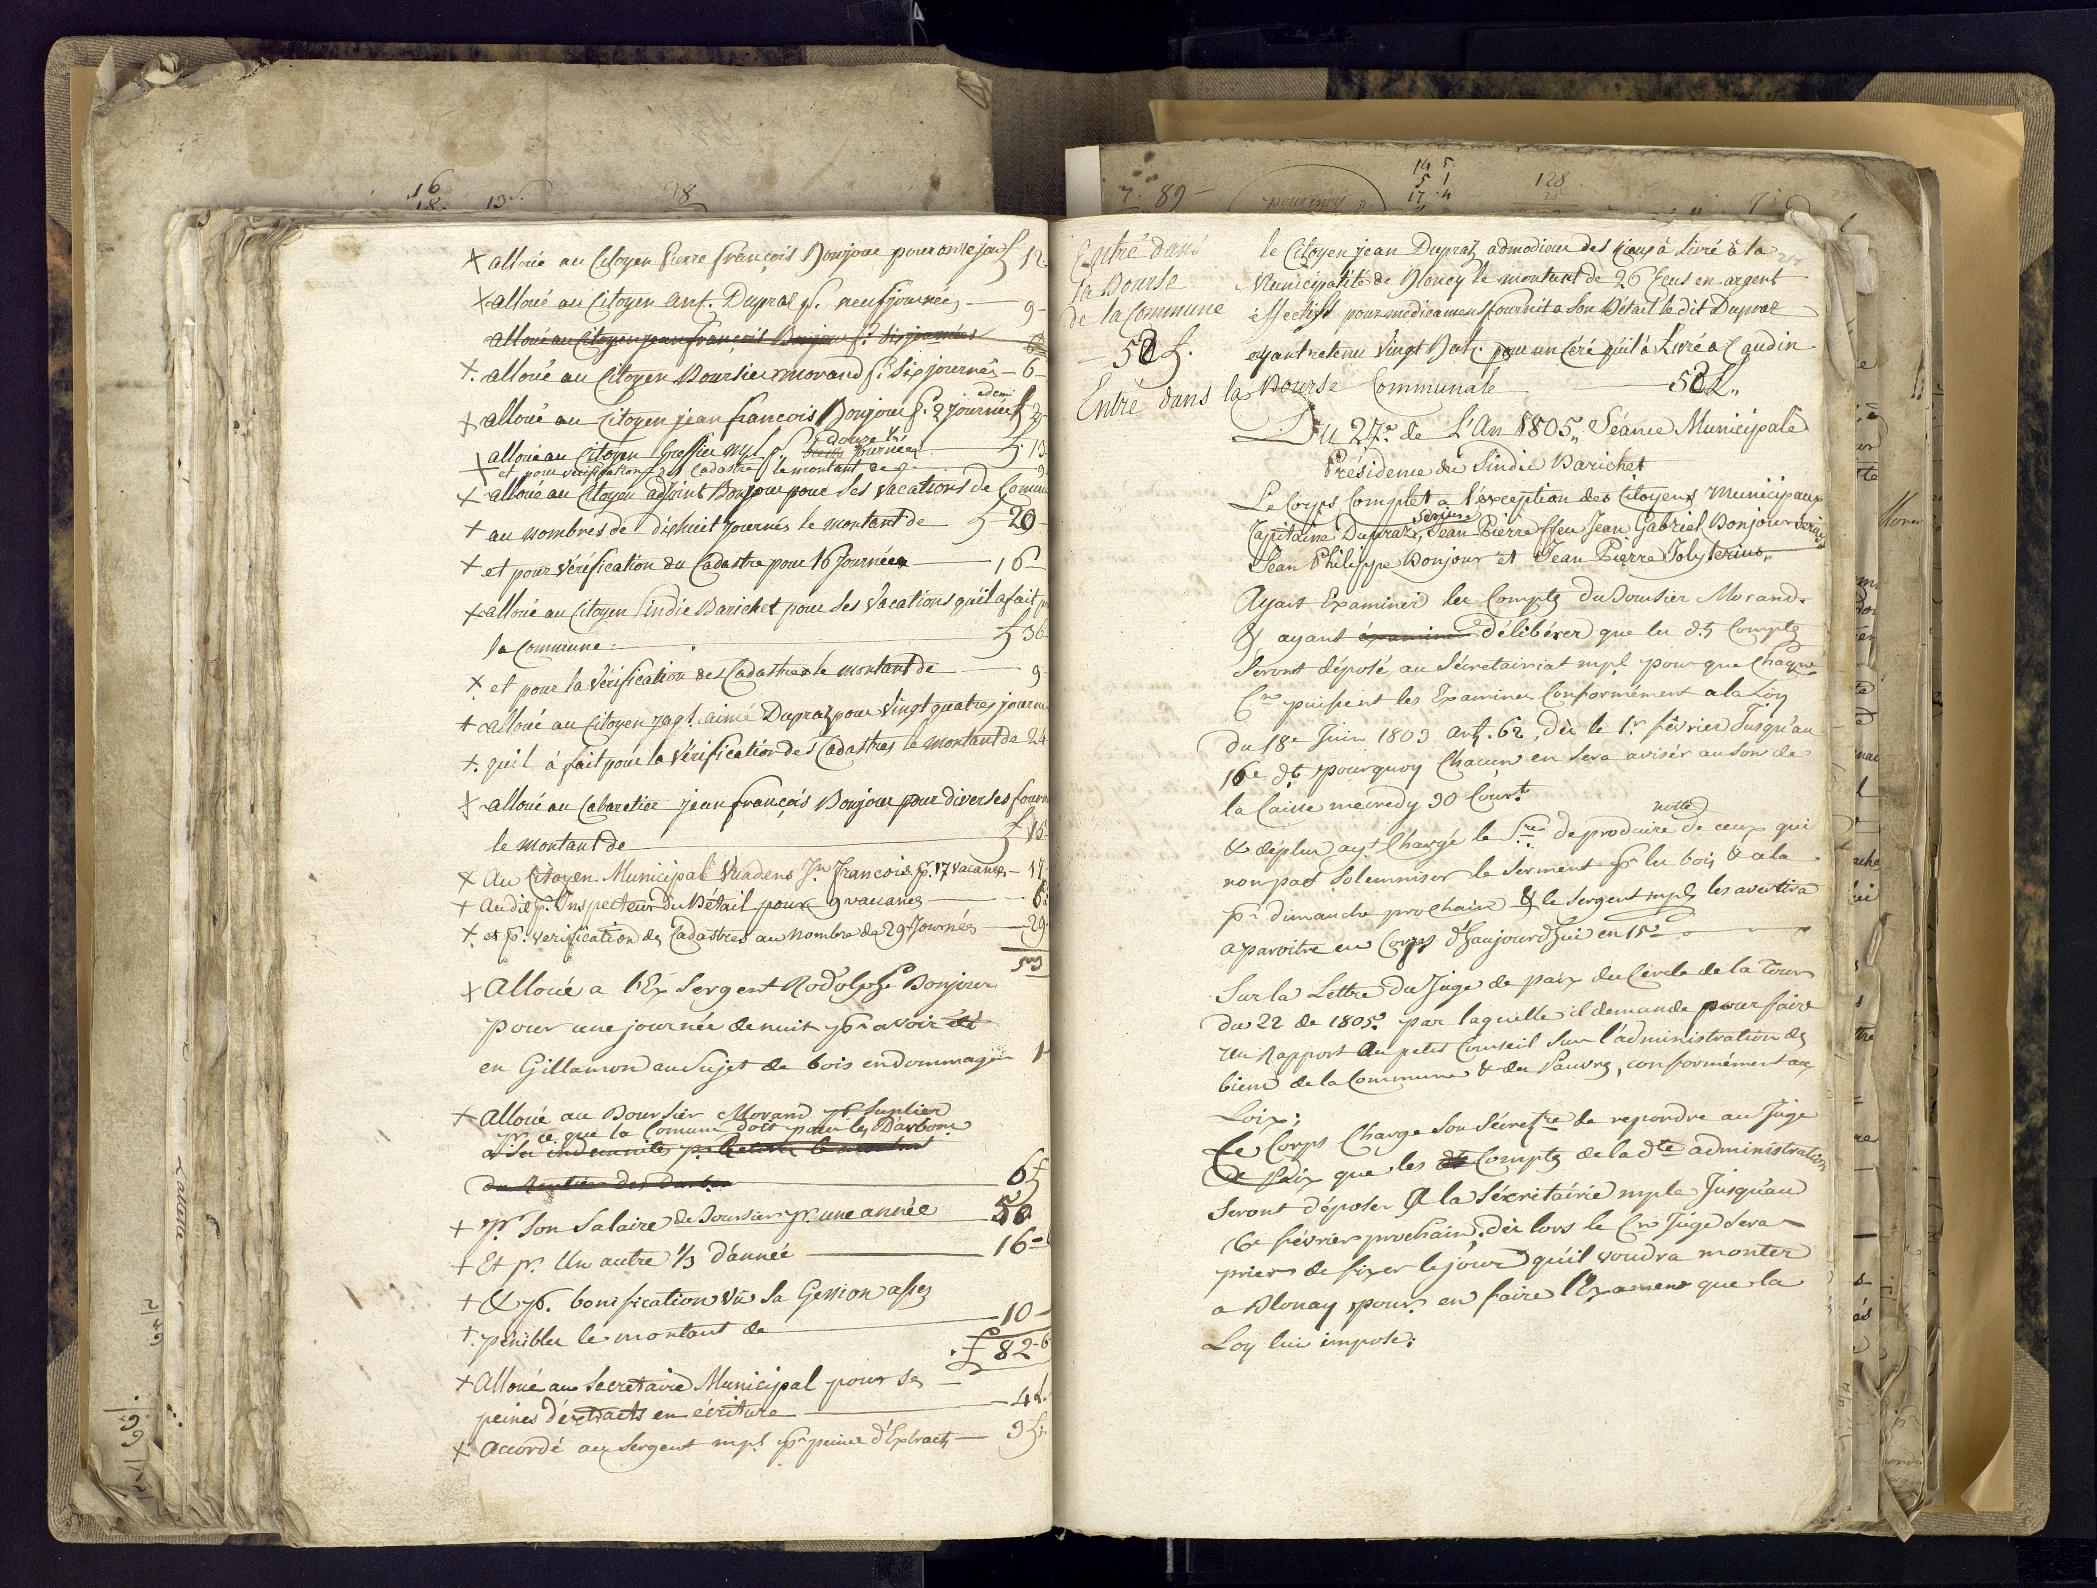 x alloué au Citoyen Pierre françois Bonjour pour onze jours f 12
x alloué au Citoyen ant. Dupraz p. neuf journées — 9 —
alloué au Citoyen jean françois Bonjour p. six journées 6
x. alloué au Citoyen Boursier morand p. six journés — 6 —
x alloué au Citoyen jean francois Bonjour p. 2 journées f 2
demi
x alloué au Citoyen Greffier mpl p. journées f. 13
douze
et pour verification des Cadastre le montant de 9
x alloué au Citoyen adjoint Bonjour pour ses vacations de Comune
+ au nombres de dishuit journés le montant de f 20 —
+ et pour vérification du Cadastre pour 16 journées — 16 —
x alloué au Citoyen sindic Barichet pour ses Vacations quil a fait pr
la Commune. f 36
x et pour la Vérification des Cadastres le montant de 9
+ alloué au Citoyen aimé Dupraz pour Vingt quatres journé
x. quil à fait pour la Vérification des Cadastres le montant de 24
x alloué au Cabaretier jean françois Bonjour pour diverses fourn
le montant de f 15
x Au Citoyen Municipal Vuadens Jn francois p. 17 vacances — 17
+ Au dit p. Inspecteur du Bétail pour 9 vacances — 6
x. et p. verification des Cadastres au nombre de 29 Journés — 29
x Alloué a l'Ex Sergent Rodolphe Bonjour
pour une journée de nuit pr avoir été
en Gillamon au Sujet de bois endommagé 1
+ Alloué au Boursier Morand pr
pr. ce que la Comune doit pour les Darbons
6 f
+ pr. Son Salaire de Boursier pr. une année 50
+ Et pr. Un autre 1/3 d'année — 16 —
+ & pr. bonification vû sa Gestion assez
+. penibles le montant de — 10 —
f 82 - 6
+ Alloué au Secretaire Municipal pour se
peines d'extracts en écriture — 4 L.
x Accordé au Sergent mpl pr peine d'Extracts — 3 f
Entré dans
la Bourse
de la Commune
— 52 f.
le Citoyen jean Dupraz admodieur des à livré à la
Municipalité de Blonay le montant de 26 Ecus en argent
éffectifs pour médicament fournit a son Bétail le dit Dupraz
ayant retenu Vingt Batz pour un Céré quil à Livré à Caudin
Entré dans la Bourse Communale — 52 L.
Du 27e. de L'An 1805, Séance Municipale
Présidence du Sindic Barichet
Le Corps Complet a l'exception des Citoyens Municipaux
Capitaine Dupraz, Jean Pierre ffeu Jean Gabriel Bonjour
Jean Philippe Bonjour et Jean Pierre
Ayant Examiner les Compte du Boursier Morand.
& ayant examiner délibérer que les dts Compte
Seront déposé au Sécretairiat mpl pour que Chaque
Cn puissent les Examiner Conformément a la Loy
du 18e Juin 1803 art. 62, dès le 1r février Jusqu'au
16e dt pourquoy Chacun en sera avisér au Son de
la Caisse mecredy 30 Court
& déplus ayt Chargé le Sre de produire notte de ceux qui
non pas Solemniser le Serment pr les bois & a la
pr dimanche prochain & le Sergent mpl les avertira
a paroitre en Corps d'haujourd'hui en 15e
Sur la Lettre du Juge de paix du Cercle de la Tour
du 22 de 1805 par laquelle il demande pour faire
un Rapport Au petit Conseil Sur l'administration des
biens de la Commune & des Pauvres, conformément aux
Loix;
Le Corps Charge son Sécretre de repondre au Juge
de Paix que les Comptes de la dte administration
Seront déposer A la Sécritairie mple Jusqu'au
16e février prochain, dès lors le Cn Juge sera
prier de fixer le jour qu'il voudra monter
a Blonay pour en faire l'Examens que la
Loy lui impose: